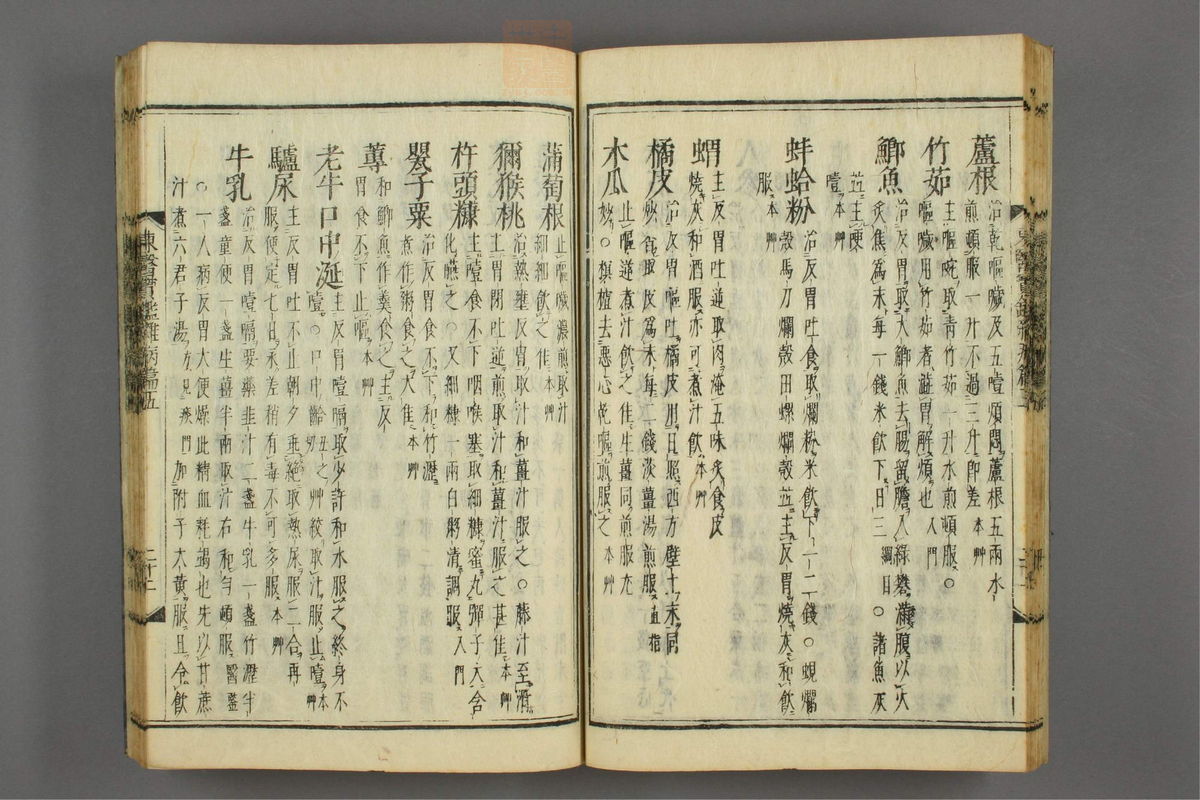 蘆根
治乾嘔噦及五噎煩悶蘆根五兩水
煎頓服一升不過三升卽差 本艸
竹茹
主嘔啘靑竹茹一升水煎頓服○
嘔噦用竹茹者避胃解煩也 入門
鯽魚
治反胃取大鯽魚去腸留膽入綠礬滿腹以火
炙焦爲末每一錢米飮下日三 綱目 ○諸魚灰
並主哽
噎 本艸
蚌蛤粉
治反胃吐食取爛粉米飮下一二錢○蜆爛
殼馬刀爛殼田螺爛殼並主反胃燒灰和飮
服 本艸
蝟
主反胃吐逆取肉淹五味炙食皮
燒灰和酒服亦可煮汁飮 本艸
橘皮
治反胃嘔吐橘皮用日照西方壁土末同
炒香取皮爲末每二錢淡薑湯煎服 直指
木瓜
止嘔逆煮汁飮之佳生薑同煎服尤
妙○榠樝去惡心吃嘔煎服之 本艸
蒲萄根
止嘔噦濃煎取汁
細細飮之佳 本艸
獼猴桃
治熱壅反胃取汁和薑汁服之○藤汁至滑
主胃閉吐逆煎取汁和薑汁服之甚佳 本艸
杵頭糠
主噎食不下咽喉塞取細糠蜜丸彈子大含
化嚥之○又細糠一兩白粥淸調服 入門
罌子粟
治反胃食不下和竹瀝
煮作粥食之大佳 本艸
蓴
和鯽魚作羹食之主反
胃食不下止嘔 本艸
老牛口中涎
主反胃噎膈取少許和水服之終身不
噎○口中齝丑之艸絞取汁服止噎 本艸
驢尿
主反胃吐不止朝夕垂絕取熱尿服二合再
服便定七日永差稍有毒不可多服 本艸
牛乳
治反胃噎膈要藥韭汁二盞牛乳一盞竹瀝半
盞童便一盞生薑半兩取汁右和勻頓服 醫鑒
○一人病反胃大便燥此精血耗竭也先以甘蔗
汁煮六君子湯 方見痰門 加附子大黃服且令飮
東醫寶鑑雜病篇五
二十二